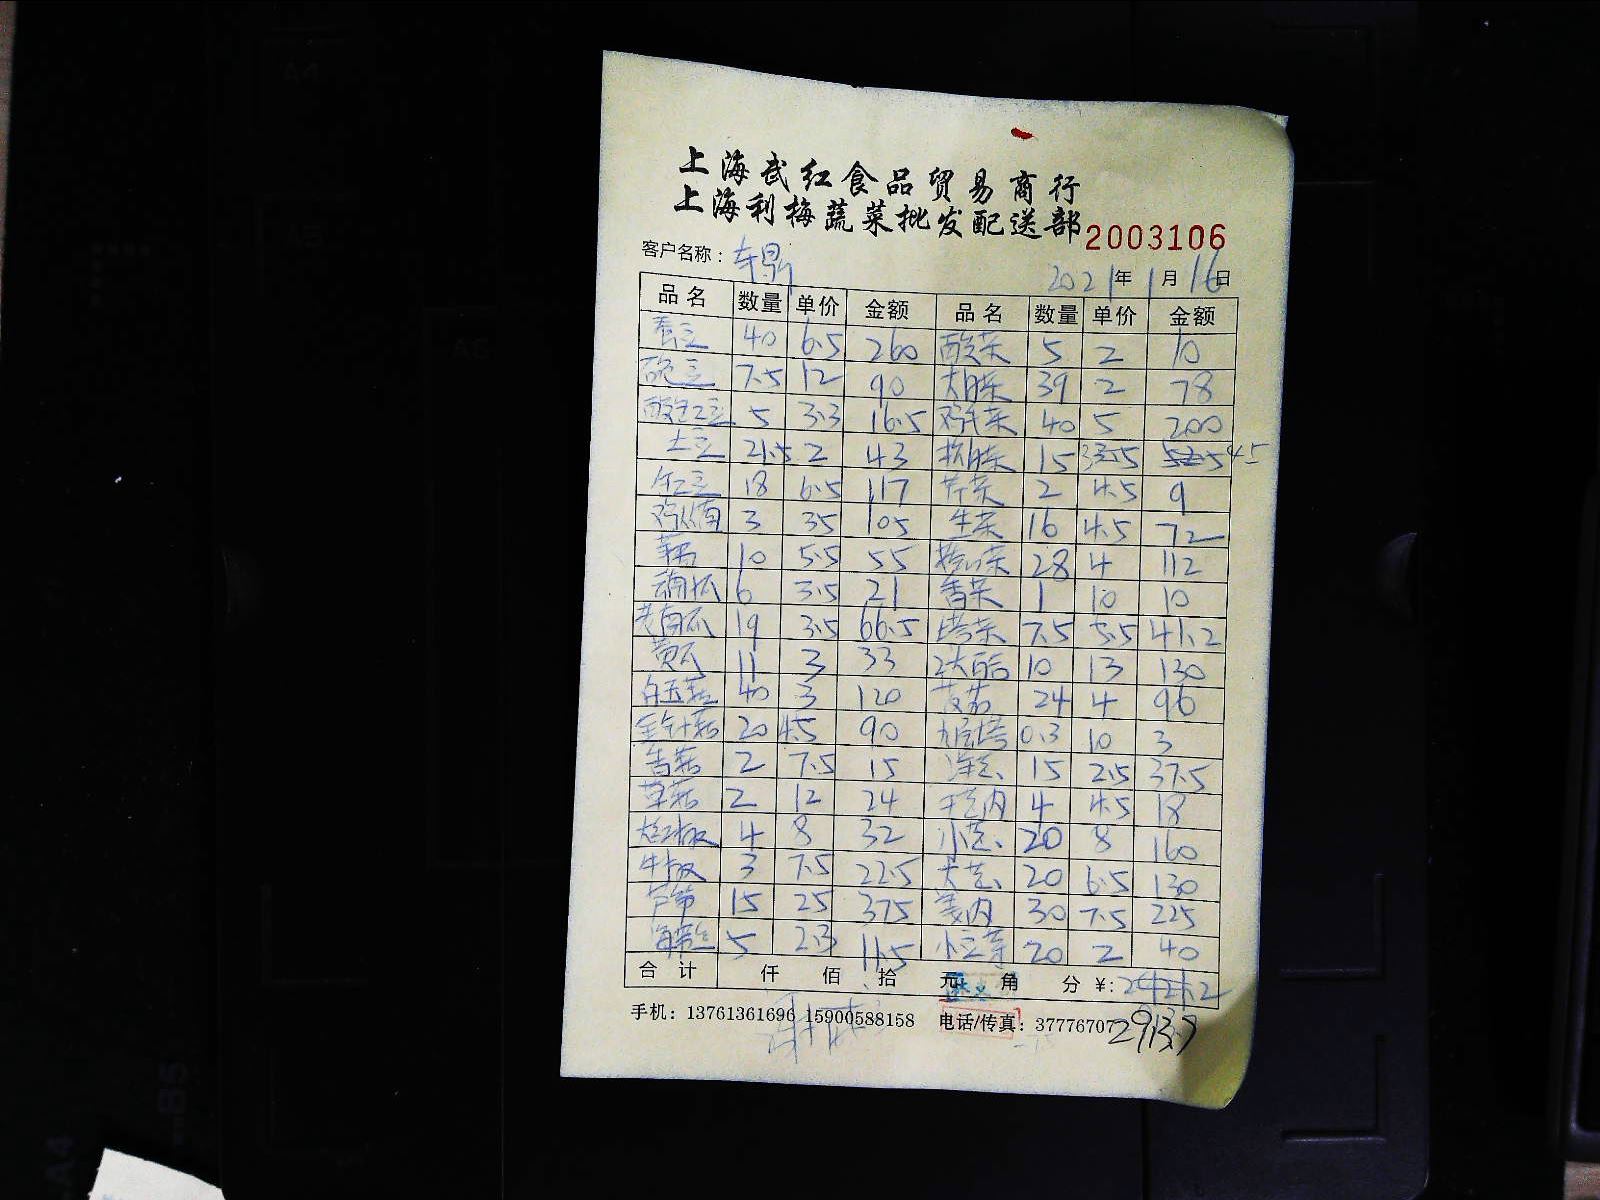 上海武红食品贸易商行
上海利梅蔬菜批发配送部 2003106
客户名称： 2021年1月16日
品名 数量 单价 金额 品名 数量 单价 金额
蚕豆 40 6.5 260 酸菜 5 2 10
7.5 12 90 39 2 78
5 3.3 16.5 鸡毛菜 40 5 200
土豆 21.5 2 43 15 45
18 6.5 117 芹菜 2 4.5 9
3 35 105 生菜 16 4.5 72
10 5.5 55 28 4 112
6 3.5 21 香菜 1 10 10
老南瓜 19 3.5 66.5 塔菜 7.5 5.5 41.2
黄瓜 11 3 33 10 13 130
白玉菇 40 3 120 24 4 96
金针菇 20 4.5 90 九层塔 0.3 10 3
香菇 2 7.5 15 洋葱 15 2.5 37.5
草菇 2 12 24 4 4.5 18
大红椒 4 8 32 小葱 20 8 160
牛椒 3 7.5 22.5 大葱 20 6.5 130
芦笋 15 25 375 30 7.5 225
海带丝 5 2.3 11.5 20 2 40
合计 仟 佰 拾 元 角 分 ¥:
手机：13761361696 15900588158 电话/传真：37776707
2913.7